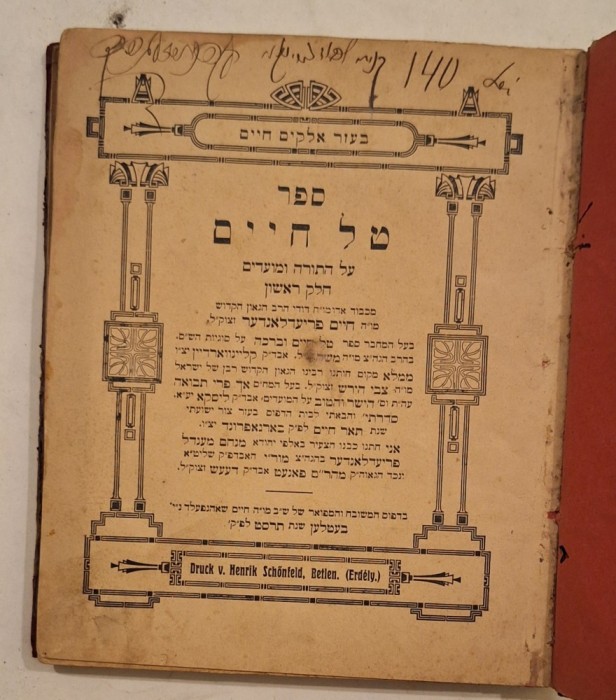 140
בעזר אלקים חיים
ספר
טל חיים
על התורה ומועדים
חלק ראשון
מכבוד אדומו״ר דודי הרב הגאון הקדוש
מו״ה חיים פריעדלאנדער זצוק״ל
בעל המחבר ספר טל חיים וברכה על סוגיות הש״ס.
בהרב הגה״צ מו״ה משה ז״ל. אבד״ק קליינווארדיין יצ״ו
ממלא מקום חותנו רבינו הגאון הקדוש רבן של ישראל
מו״ה צבי הירש זצוק״ל. בעל המח״ס אך פרי תבואה
עה״ת וס׳ הישר והטוב על המועדים. אבד״ק ליסקא יע״א.
סדרתי והבאתי לבית הדפוס בעזר צור ישועתי
שנת תאר חיים לפ״ק בארנאפרונד יצ״ו.
אני חתנו כבנו הצעיר באלפי יהודא מנחם מענדל
פריעדלאנדער בהגה״צ מור״י האבדפ״ק שליט״א
ונכד הגאוה״ק מהר״ם פאנעט אבד״ק דעעש זצוק״ל.
בדפוס המשובח והמפואר של ש״ב מו״ה חיים שאהנפעלד ני״ו
בעטלען שנת תרסט לפ״ק.
Druck v. Henrik Schönfeld, Betlen. (Erdély.)